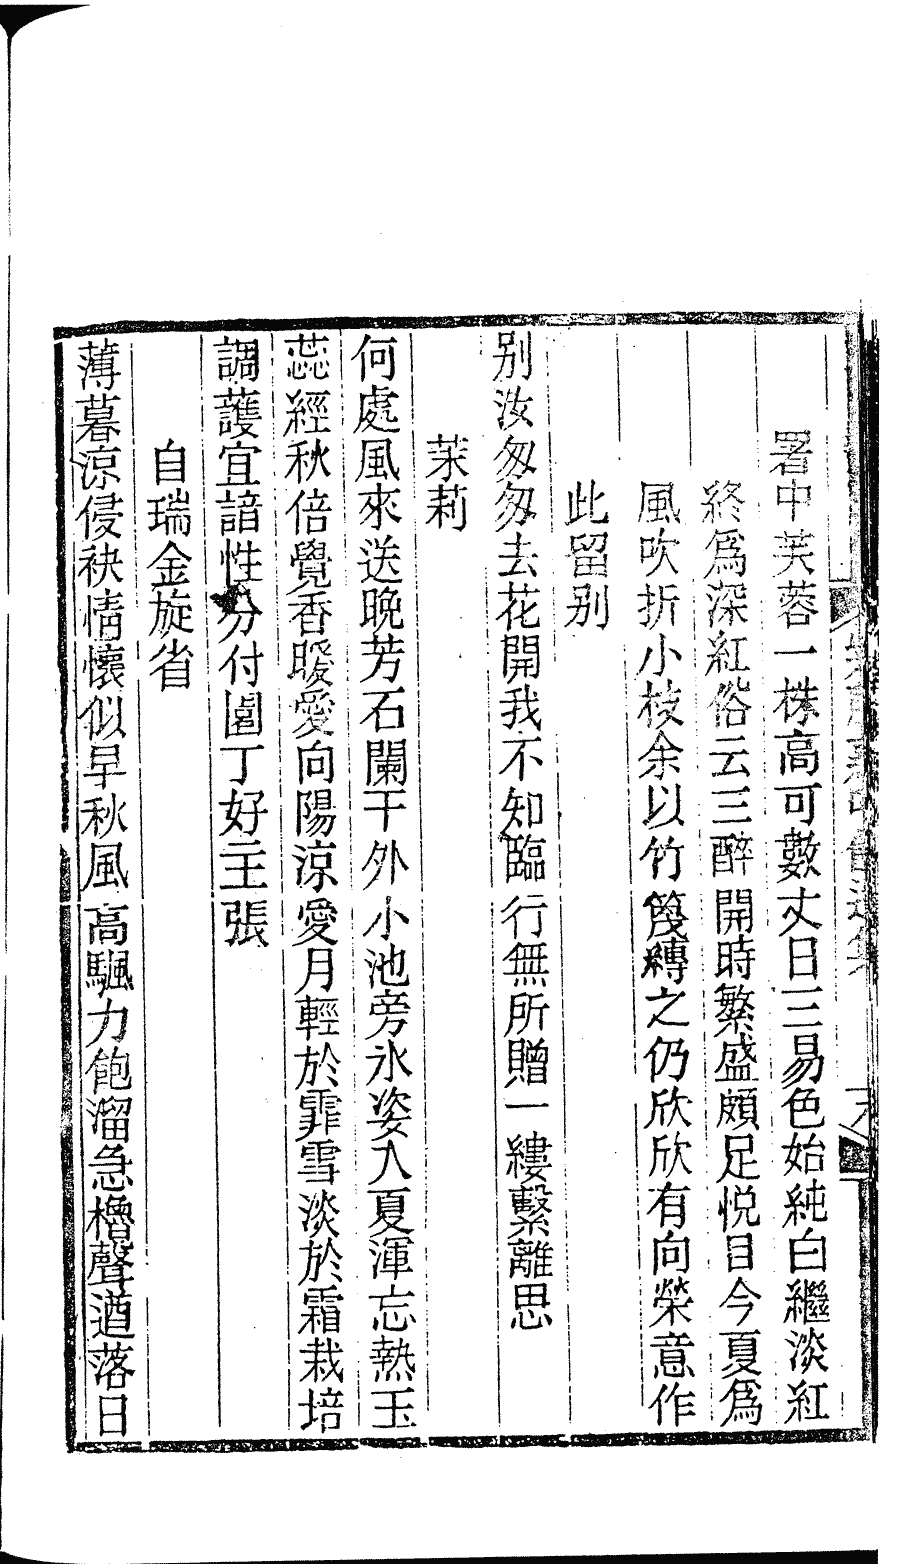 署中芙蓉一株高可數丈日三易色始純白繼淡紅
終爲深紅俗云三醉開時繁盛頗足悅目今夏爲
風吹折小枝余以竹篾縛之仍欣欣有向榮意作
此留別
別汝匆匆去花開我不知臨行無所贈一縷繫離思
茉莉
何處風來送晚芳石闌干外小池旁氷姿入夏渾忘熱玉
蕊經秋倍覺香暖愛向陽涼愛月輕於霏雪淡於霜栽培
調護宜諳性分付園丁好主張
自瑞金旋省
薄暮涼侵袂情懷似早秋風高颿力飽溜急櫓聲遒落日